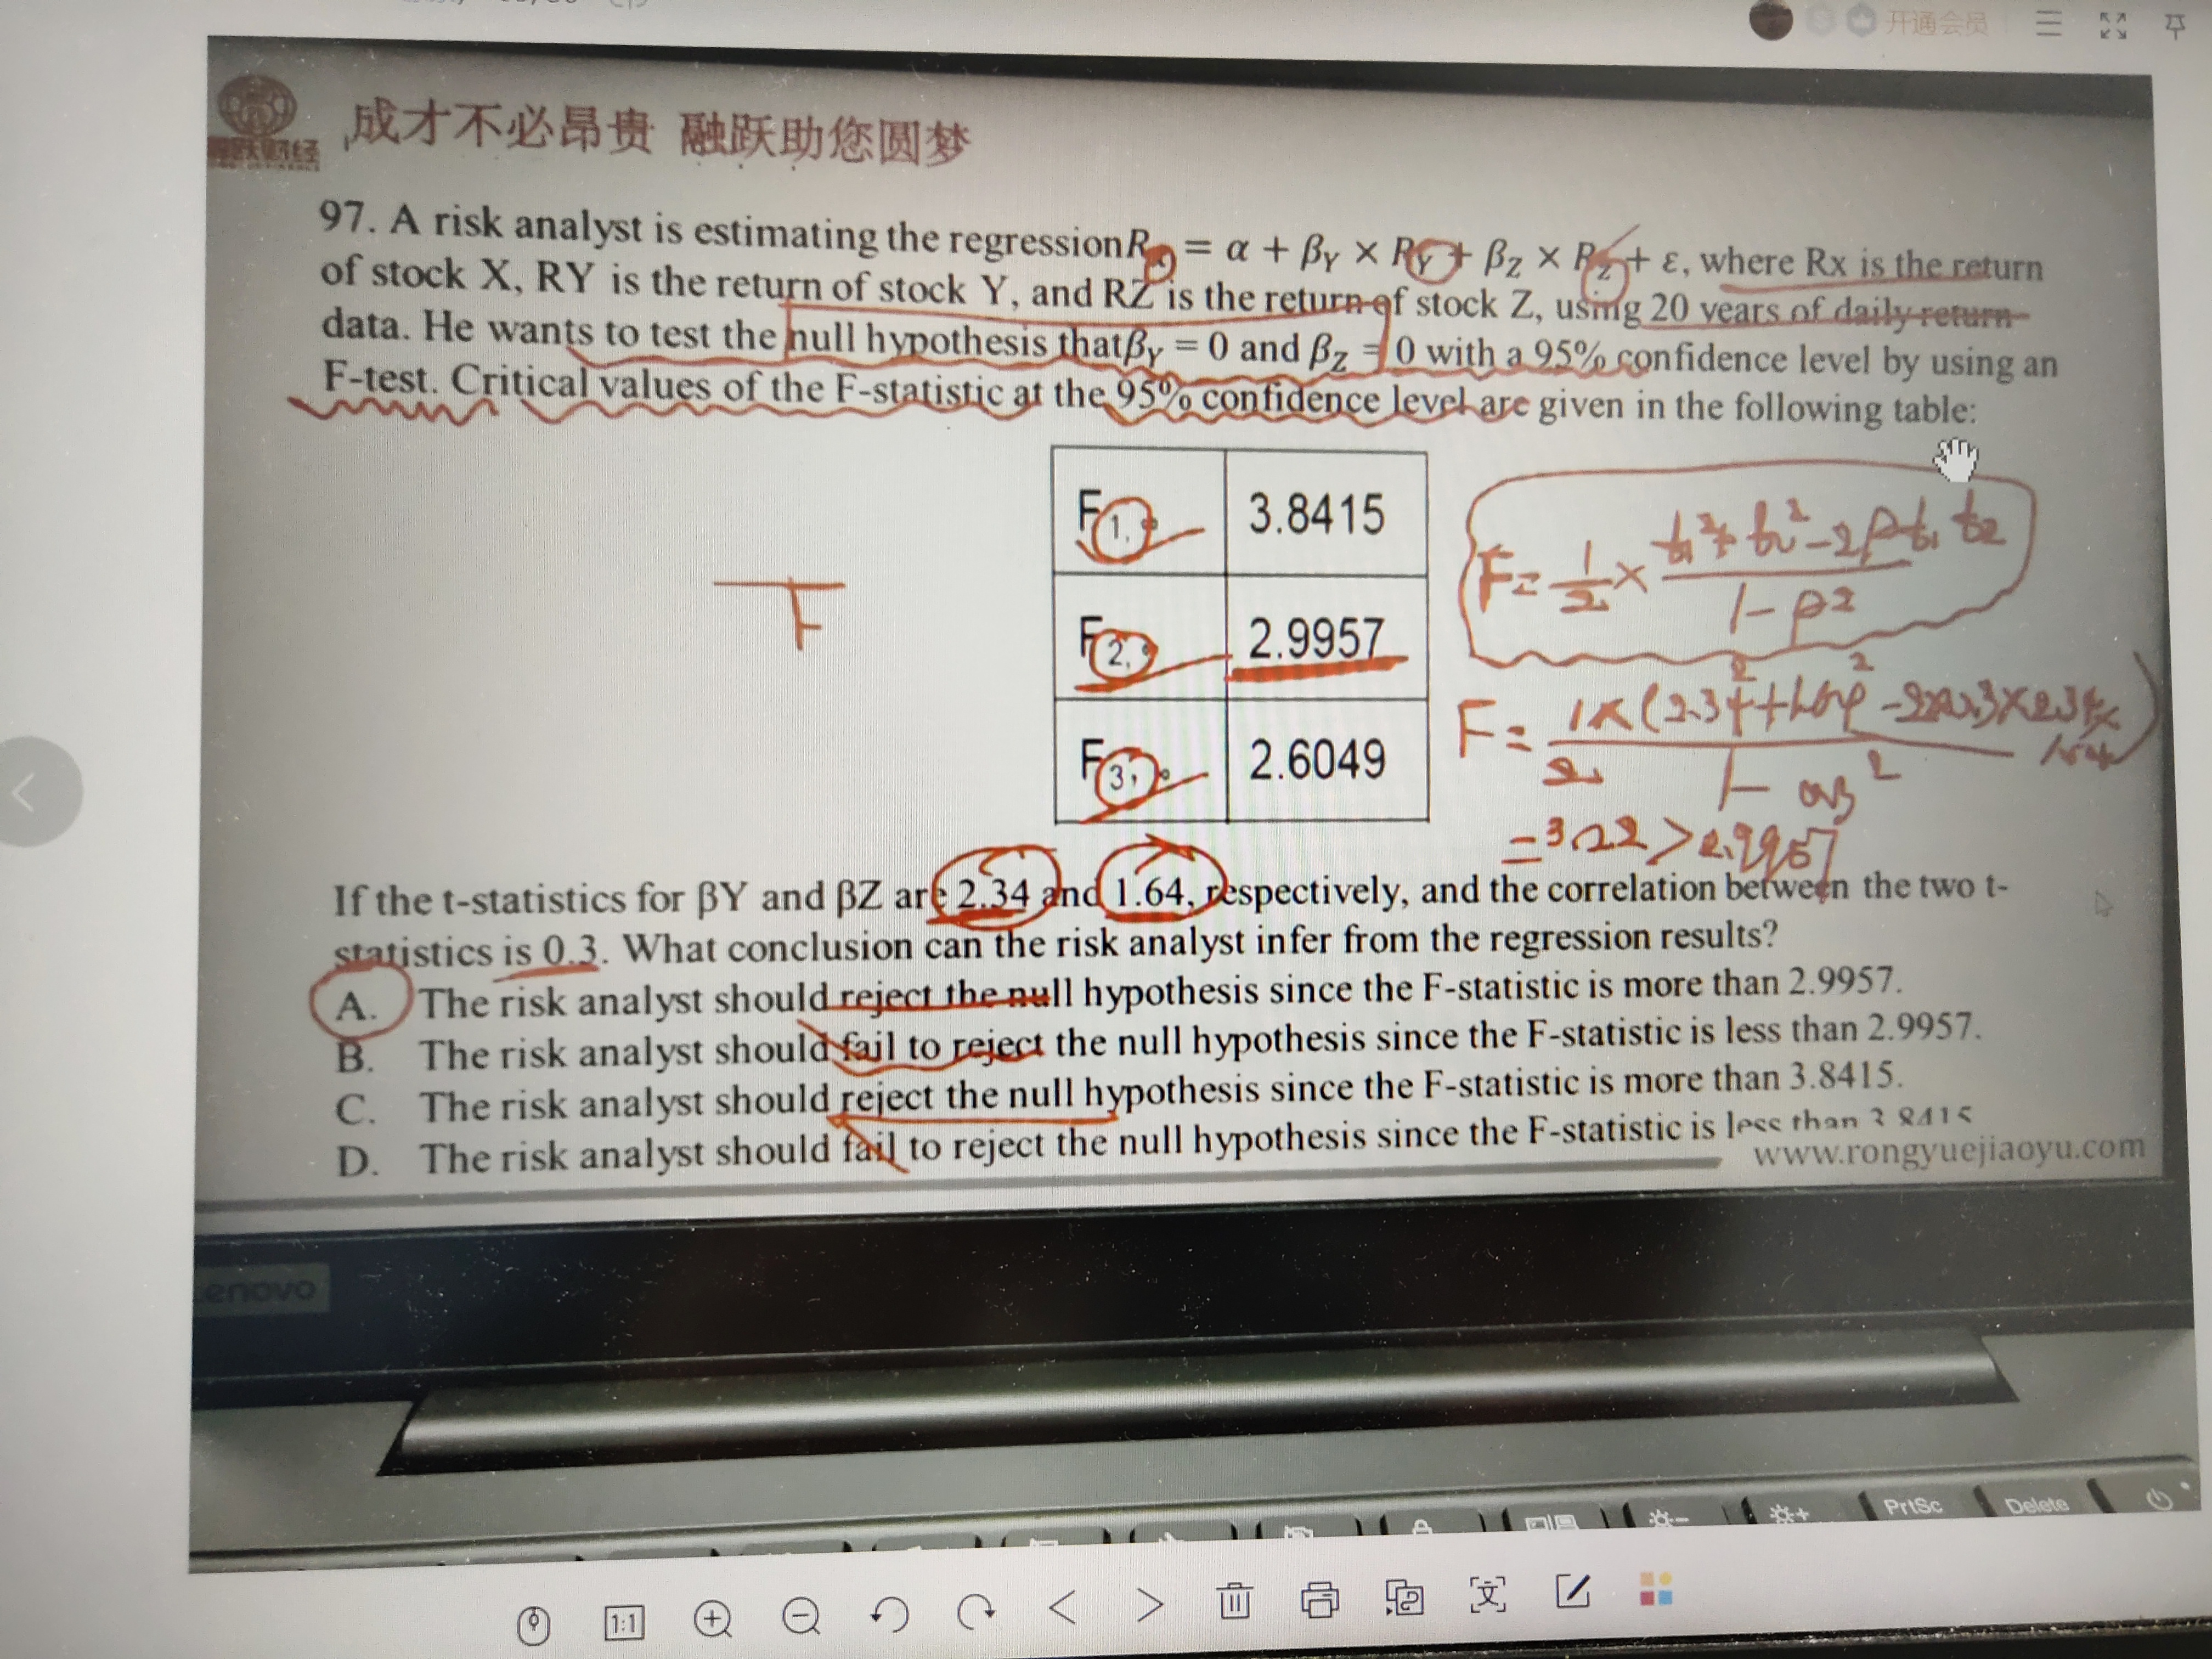 开通会员
成才不必昂贵 融跃助您圆梦
97. A risk analyst is estimating the regression Rₓ = α + βY × RY + βZ × RZ + ε, where Rx is the return
of stock X, RY is the return of stock Y, and RZ is the return of stock Z, using 20 years of daily return
data. He wants to test the null hypothesis that βY = 0 and βZ = 0 with a 95% confidence level by using an
F-test. Critical values of the F-statistic at the 95% confidence level are given in the following table:
F1, 3.8415
F2, 2.9957
F3, 2.6049
F
F = 1/2 × (t₁² + t₂² - 2ρt₁t₂) / (1 - ρ²)
= 3.22 > 2.9957
If the t-statistics for βY and βZ are 2.34 and 1.64, respectively, and the correlation between the two t-
statistics is 0.3. What conclusion can the risk analyst infer from the regression results?
A. The risk analyst should reject the null hypothesis since the F-statistic is more than 2.9957.
B. The risk analyst should fail to reject the null hypothesis since the F-statistic is less than 2.9957.
C. The risk analyst should reject the null hypothesis since the F-statistic is more than 3.8415.
D. The risk analyst should fail to reject the null hypothesis since the F-statistic is less than 3.8415
www.rongyuejiaoyu.com
enovo
PrtSc
Delete
1:1